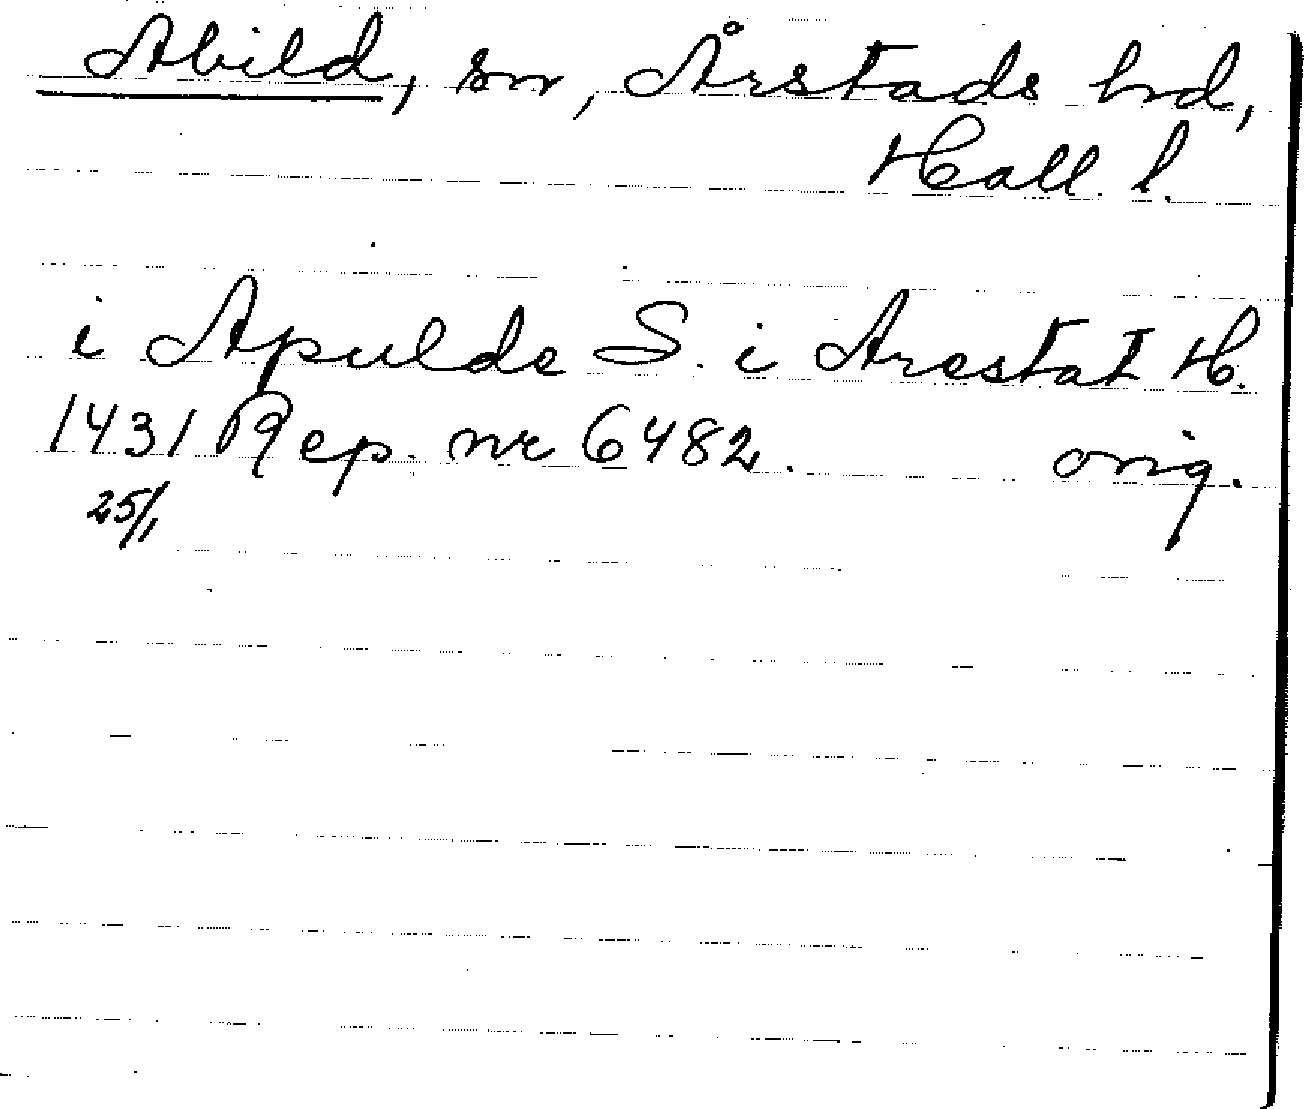 Abild, sn, Årstads hd,
Hall. l.
i Apulde S. i Arestat H.
1431 Rep. nr 6482. orig.
25/1